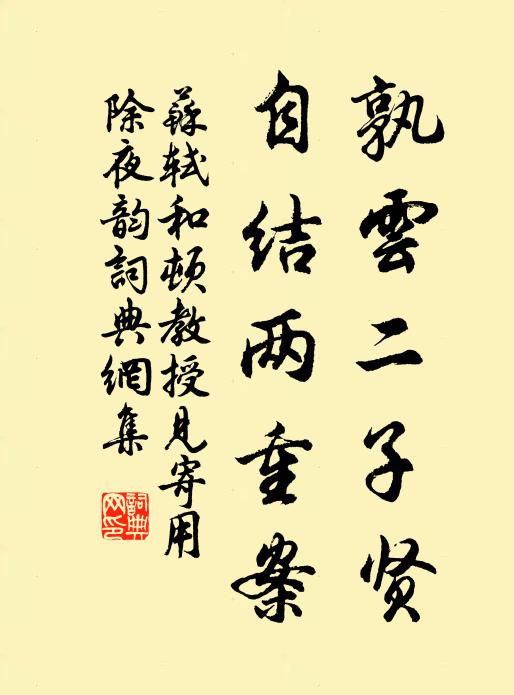 孰雲二子贤
自结两重案
蘇軾和頓教授見寄用
除夜韵詞典網集
詞典
网印